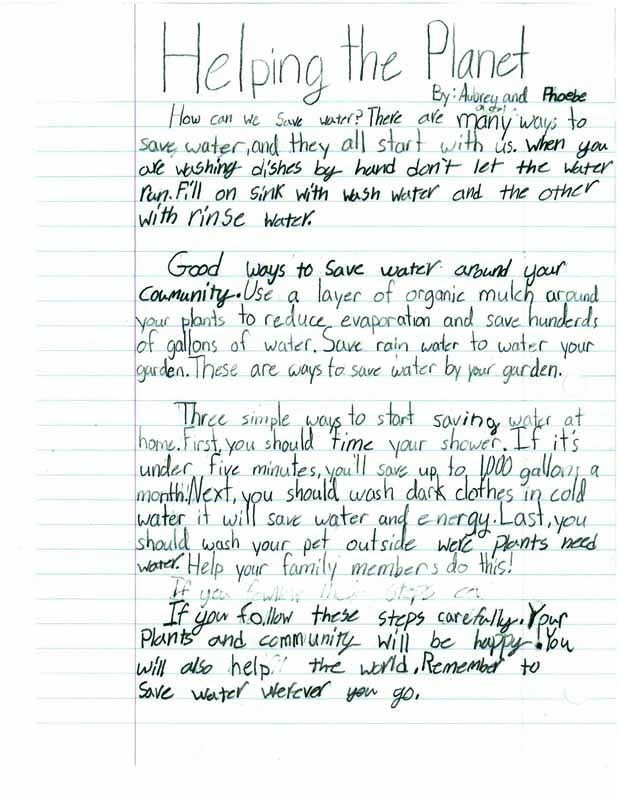 Helping the Planet
By: Aubrey and Phoebe
How can we save water? There are many ways to
save water, and they all start with us. When you
are washing dishes by hand don't let the water
run. Fill on sink with wash water and the other
with rinse water.
Good ways to save water around your
community. Use a layer of organic mulch around
your plants to reduce evaporation and save hunderds
of gallons of water. Save rain water to water your
garden. These are ways to save water by your garden.
Three simple ways to start saving water at
home. First, you should time your shower. If it's
under five minutes, you'll save up to 1,000 gallons a
month. Next, you should wash dark clothes in cold
water it will save water and energy. Last, you
should wash your pet outside were plants need
water. Help your family members do this!
If you steps
If you follow these steps carefully. Your
Plants and community will be happy! You
will also help the world. Remember to
save water wefever you go.